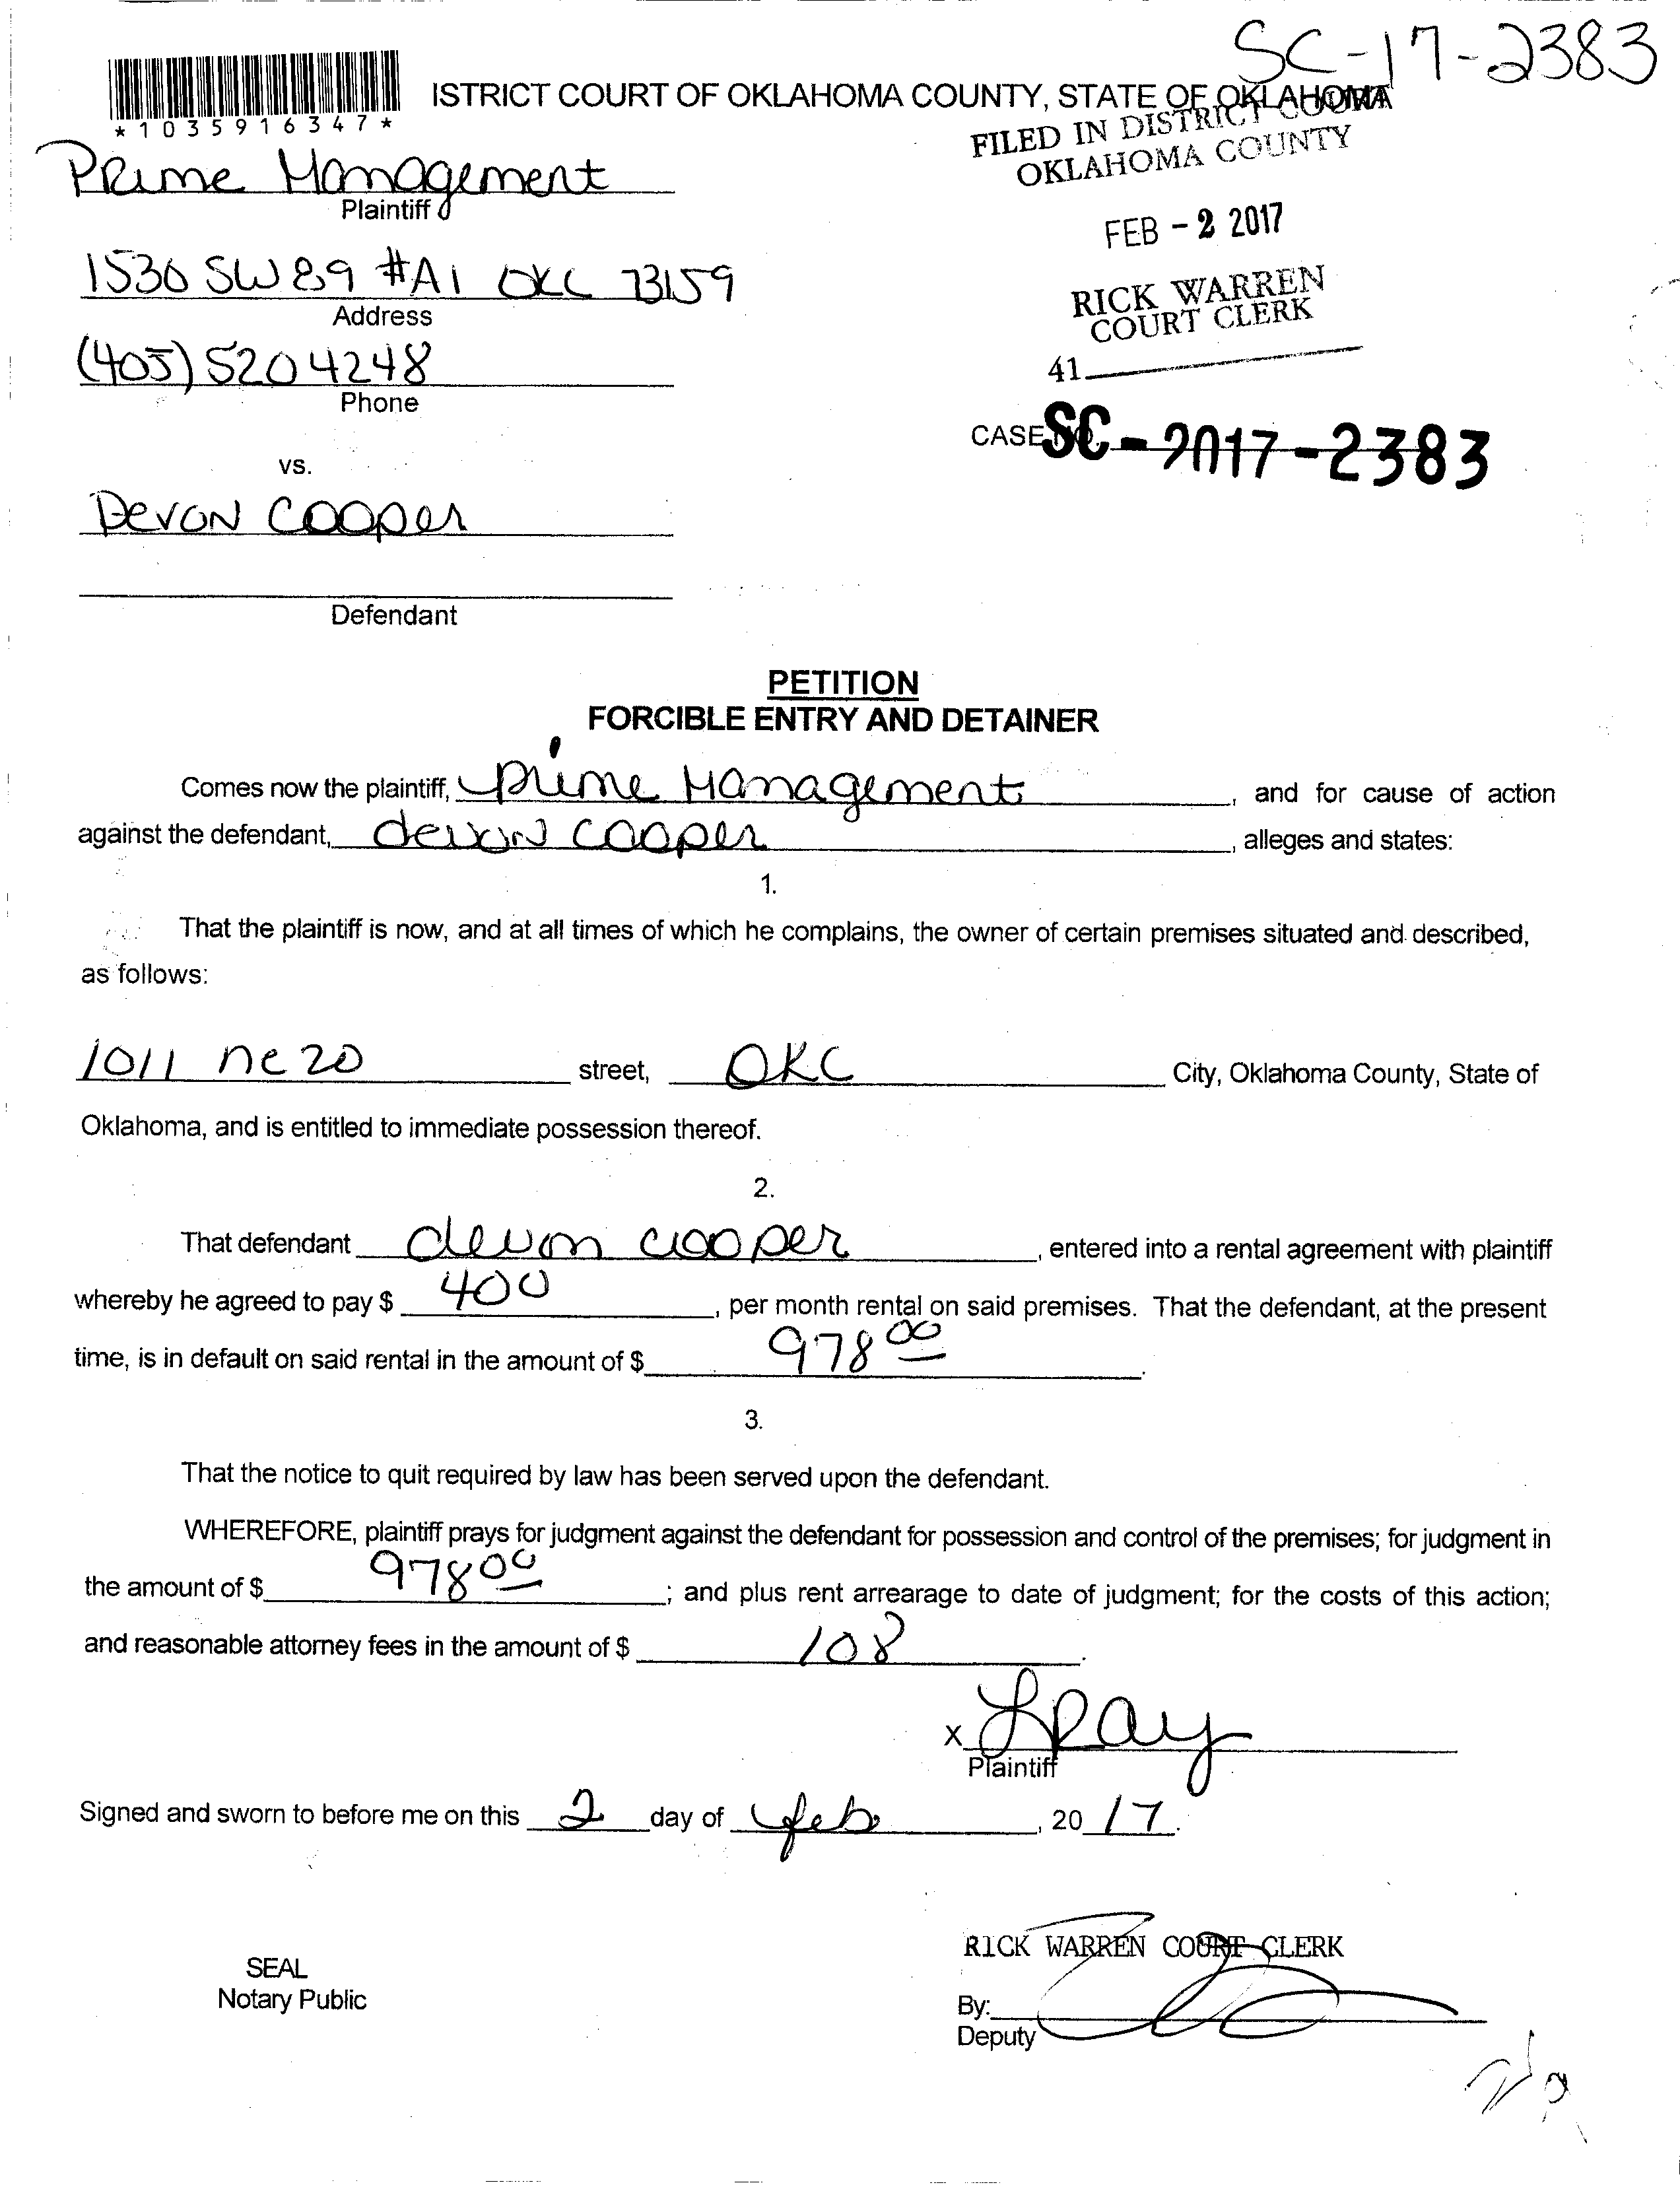 SC-17-2383
ISTRICT COURT OF OKLAHOMA COUNTY, STATE OF OKLAHOMA
*1035916347*
FILED IN DISTRICT COURT
OKLAHOMA COUNTY
Prime Management
Plaintiff
FEB - 2 2017
1530 SW 89 #A1 OKC 73159
Address
RICK WARREN
COURT CLERK
(405) 520 4248
Phone
41
CASE NO. SC-2017-2383
vs.
Devon Cooper
Defendant
PETITION
FORCIBLE ENTRY AND DETAINER
Comes now the plaintiff, Prime Management, and for cause of action
against the defendant, devon cooper, alleges and states:
1.
That the plaintiff is now, and at all times of which he complains, the owner of certain premises situated and described,
as follows:
1011 ne 20 street, OKC City, Oklahoma County, State of
Oklahoma, and is entitled to immediate possession thereof.
2.
That defendant devon cooper, entered into a rental agreement with plaintiff
whereby he agreed to pay $ 400, per month rental on said premises. That the defendant, at the present
time, is in default on said rental in the amount of $ 978 00.
3.
That the notice to quit required by law has been served upon the defendant.
WHEREFORE, plaintiff prays for judgment against the defendant for possession and control of the premises; for judgment in
the amount of $ 978 00; and plus rent arrearage to date of judgment; for the costs of this action;
and reasonable attorney fees in the amount of $ 108.
X LRay
Plaintiff
Signed and sworn to before me on this 2 day of feb, 20 17.
RICK WARREN COURT CLERK
SEAL
Notary Public
By:
Deputy